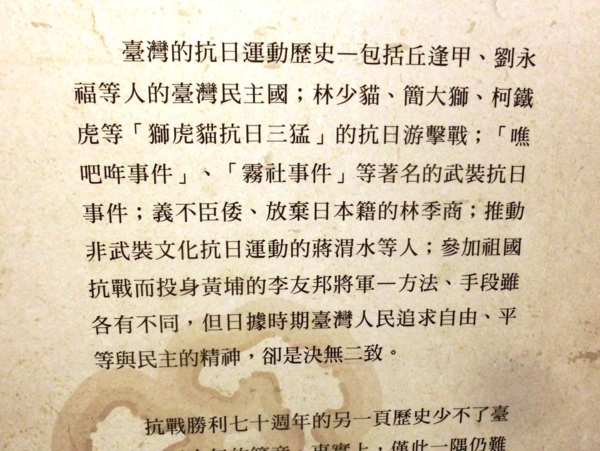 臺灣的抗日運動歷史—包括丘逢甲、劉永
福等人的臺灣民主國；林少貓、簡大獅、柯鐵
虎等「獅虎貓抗日三猛」的抗日游擊戰；「噍
吧哖事件」、「霧社事件」等著名的武裝抗日
事件；義不臣倭、放棄日本籍的林季商；推動
非武裝文化抗日運動的蔣渭水等人；參加祖國
抗戰而投身黃埔的李友邦將軍—方法、手段雖
各有不同，但日據時期臺灣人民追求自由、平
等與民主的精神，卻是決無二致。
抗戰勝利七十週年的另一頁歷史少不了臺
事實上，僅此一隅仍難